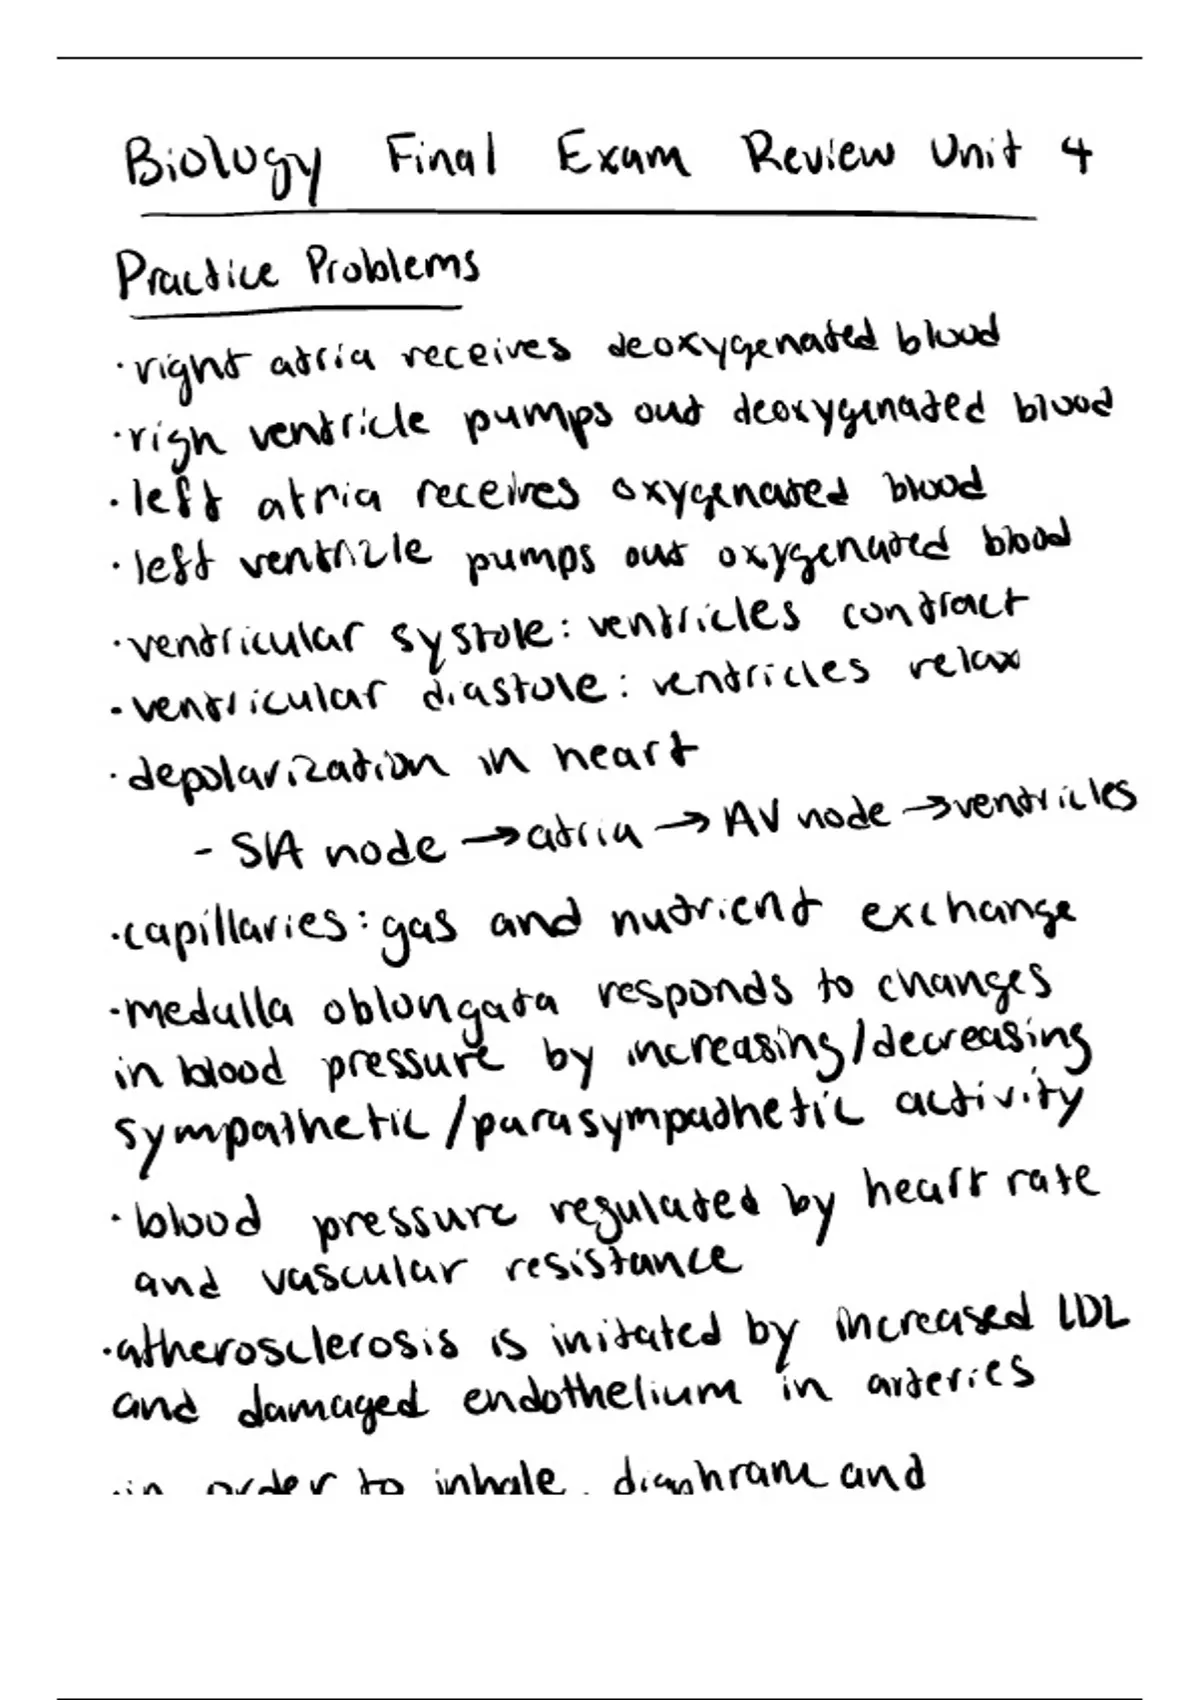 Biology Final Exam Review Unit 4
Practice Problems
·right atria receives deoxygenated blood
·righ ventricle pumps out deoxygenated blood
·left atria receives oxygenated blood
·left ventricle pumps out oxygenated blood
·ventricular systole: ventricles contract
·ventricular diastole: ventricles relax
·depolarization in heart
- SA node → atria → AV node → ventricles
·capillaries: gas and nutrient exchange
·medulla oblongata responds to changes
in blood pressure by increasing/decreasing
sympathetic/parasympathetic activity
·blood pressure regulated by heart rate
and vascular resistance
·atherosclerosis is initated by increased LDL
and damaged endothelium in arteries
·in order to inhale, diaphram and